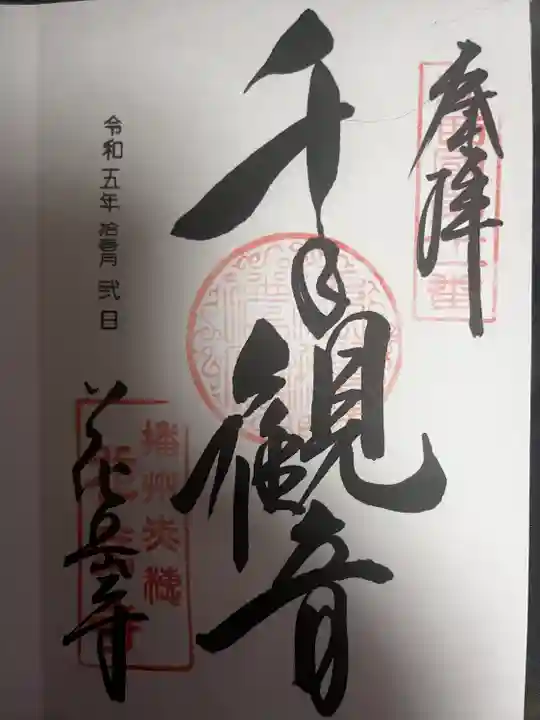 奉拝
千手観音
令和五年拾壱月弐日
花岳寺
播州赤穂